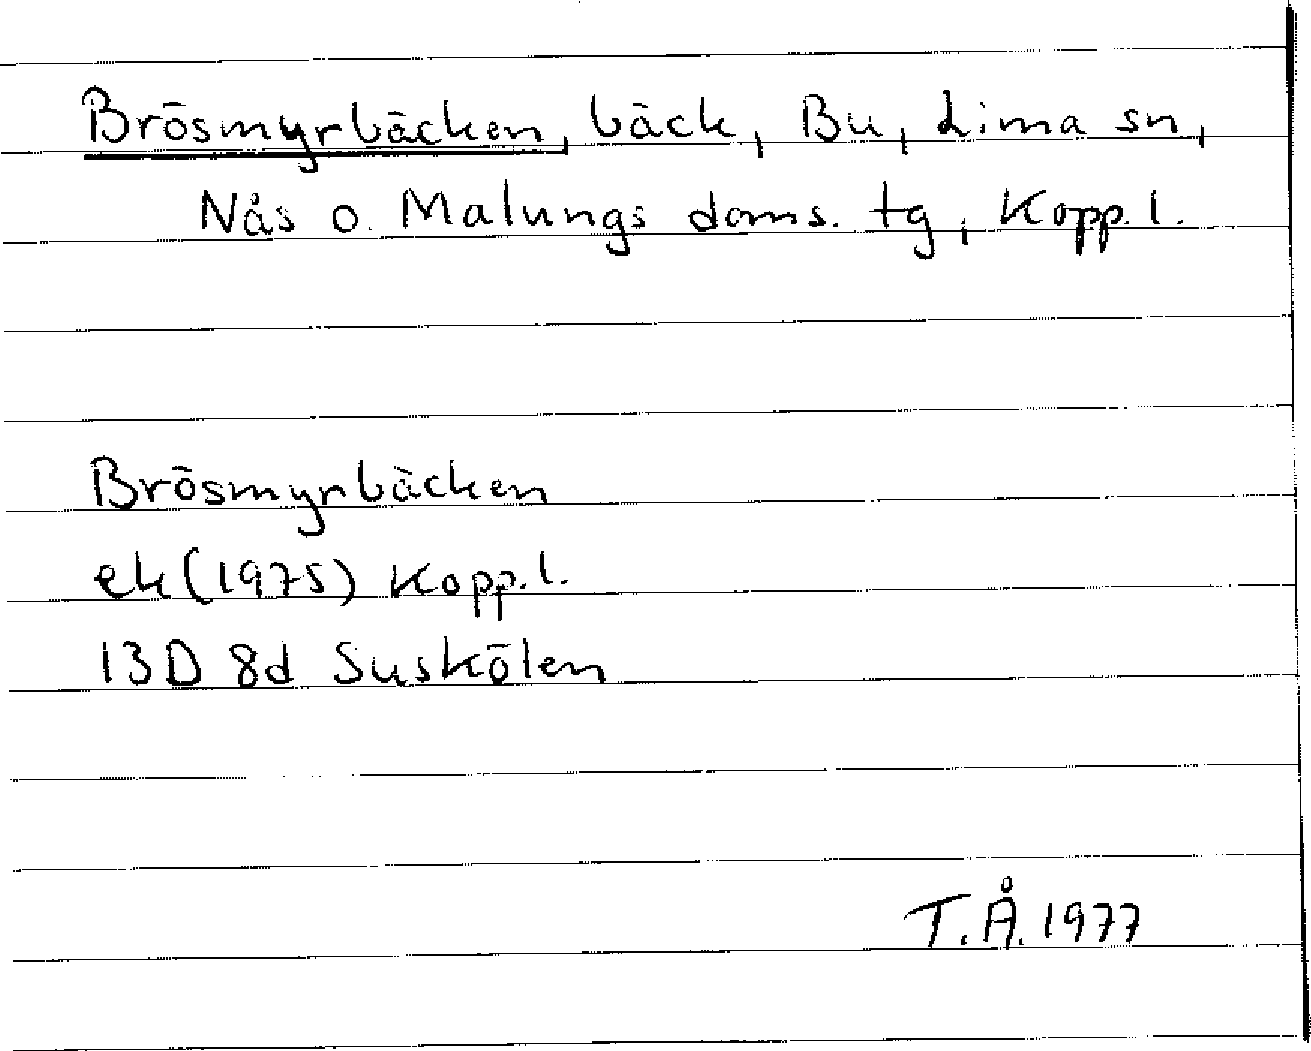 Brösmyrbäcken, bäck, Bu, Lima sn,
Nås o. Malungs doms. tg, Kopp. l.
Brösmyrbäcken
ek (1975) Kopp. l.
13D 8d Suskölen
T.Å. 1977